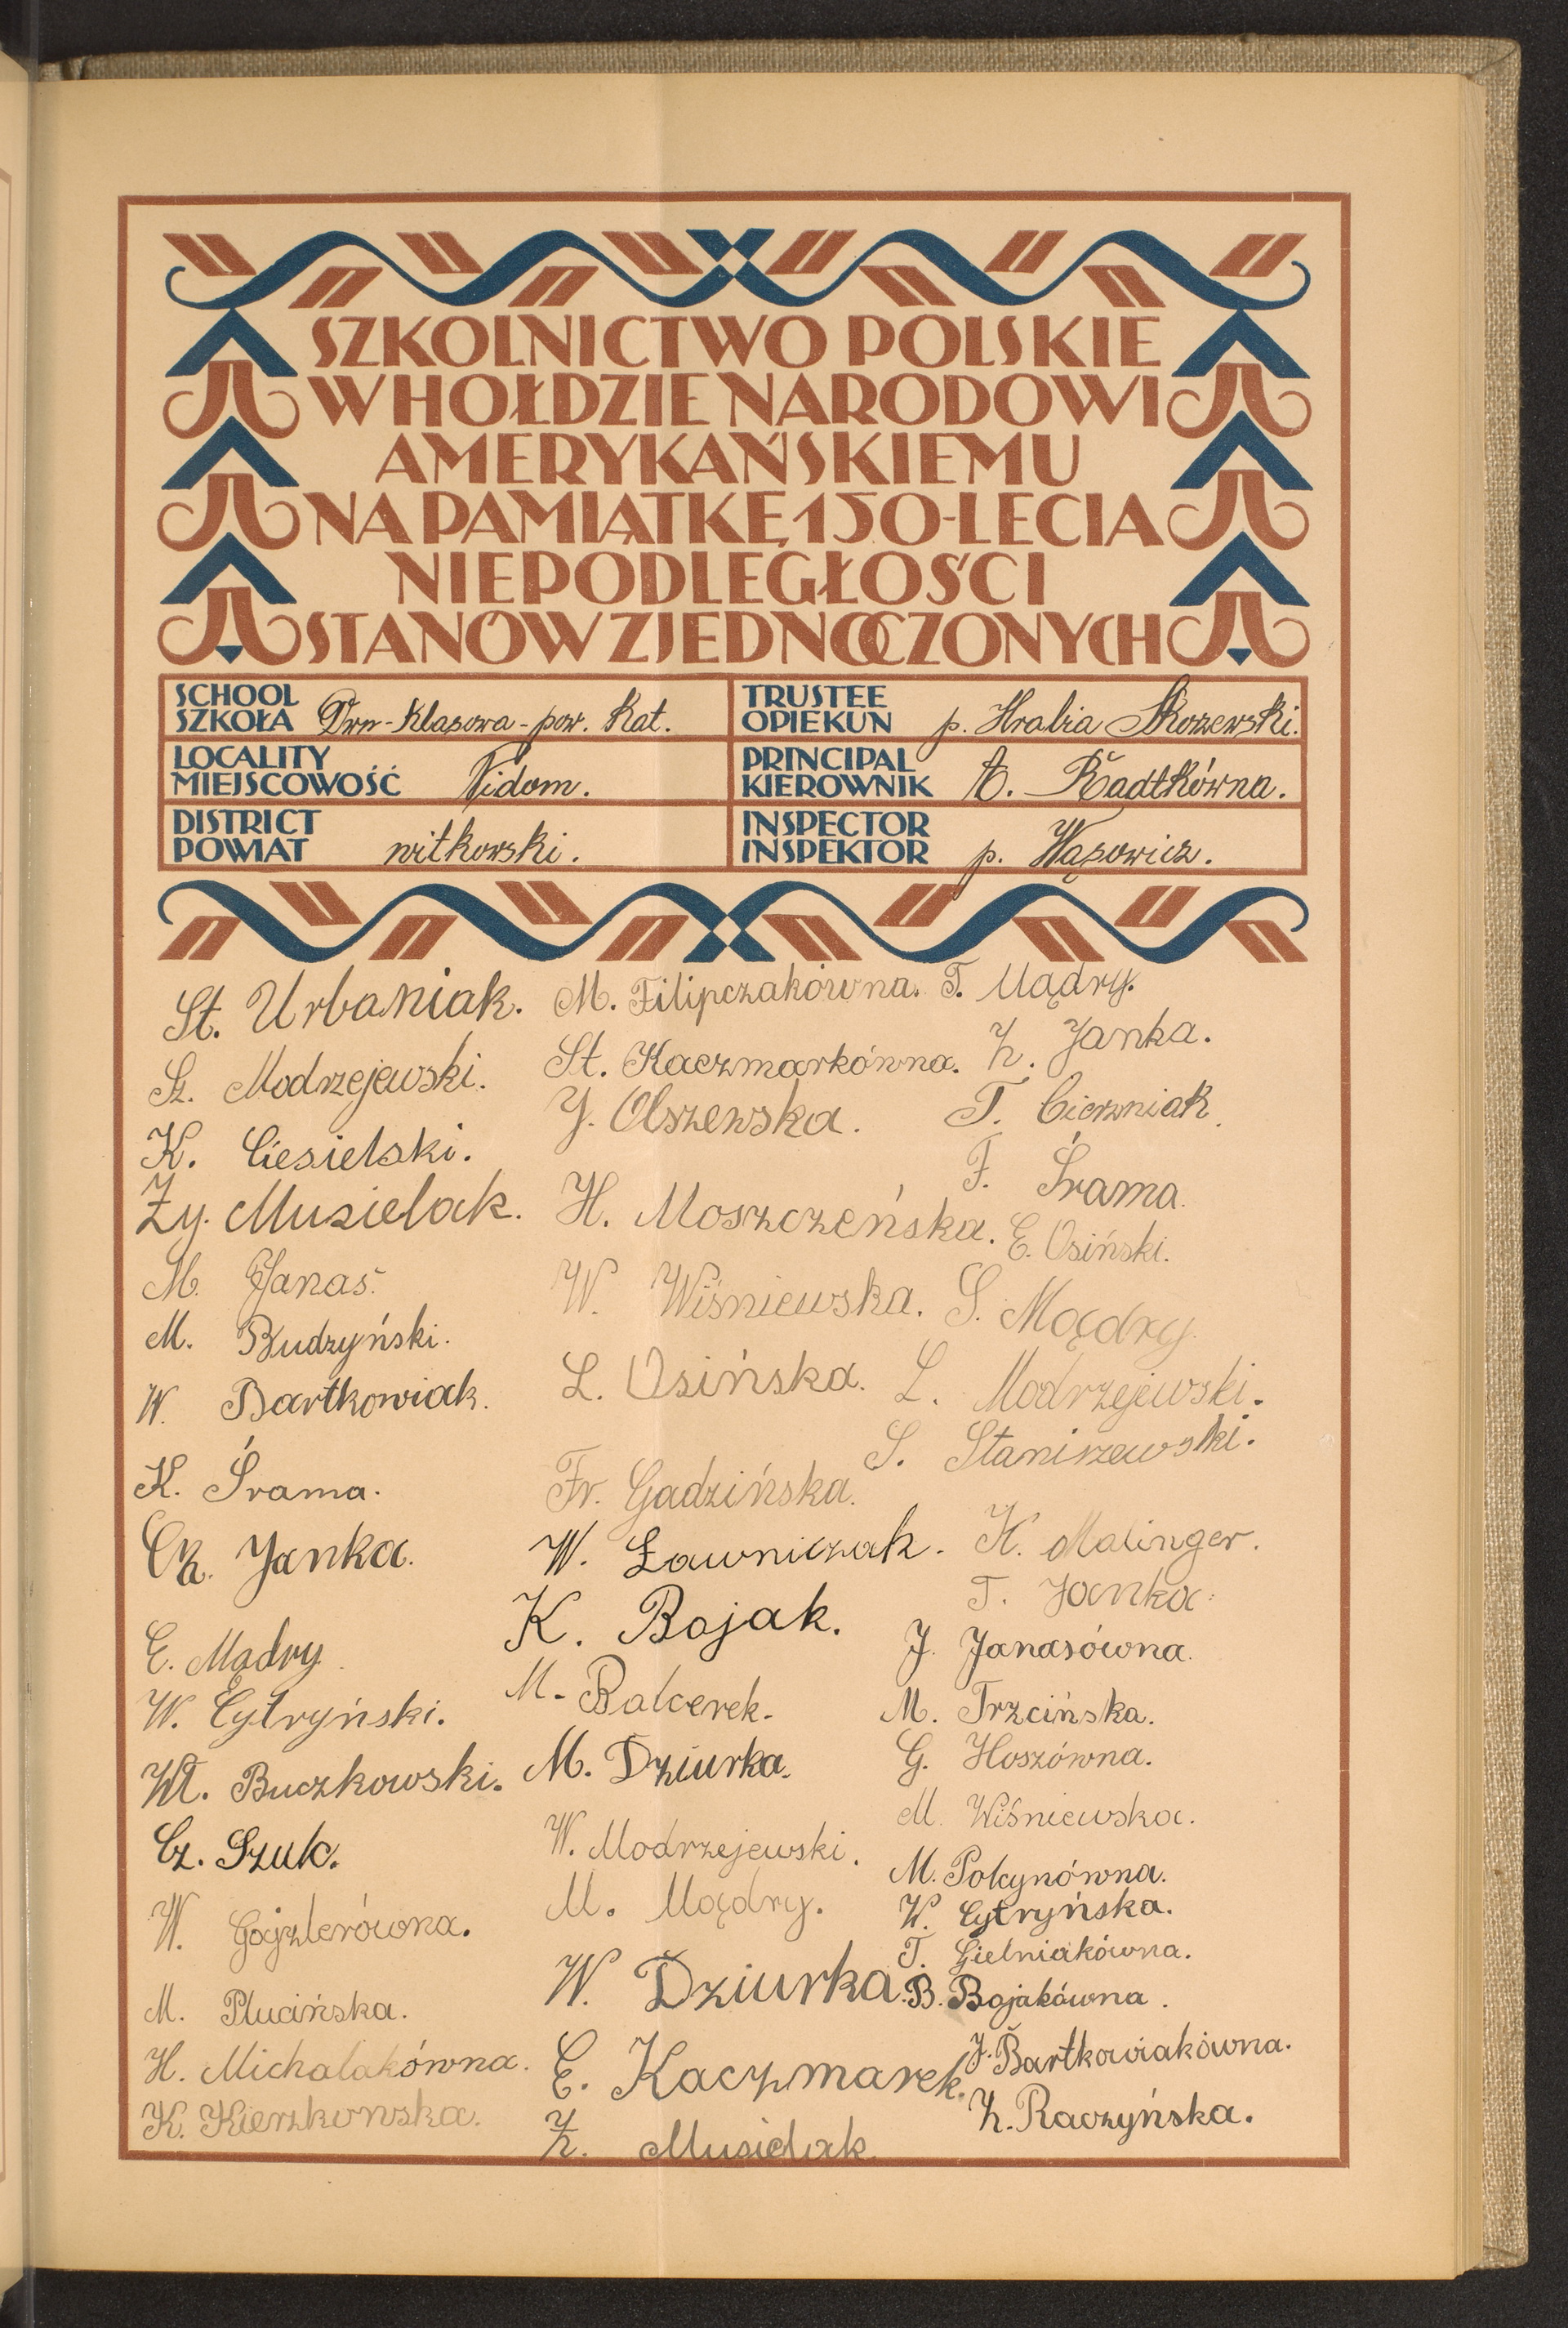 SZKOLNICTWO POLSKIE
W HOŁDZIE NARODOWI
AMERYKAŃSKIEMU
NA PAMIĄTKĘ 150-LECIA
NIEPODLEGŁOŚCI
STANÓW ZJEDNOCZONYCH
SCHOOL
SZKOŁA Dwu-klasowa-pow. Kat.
TRUSTEE
OPIEKUN p. Hrabia Skorzewski.
LOCALITY
MIEJSCOWOŚĆ Nidom.
PRINCIPAL
KIEROWNIK A. Radtkówna.
DISTRICT
POWIAT witkowski.
INSPECTOR
INSPEKTOR p. Wąsowicz.
St. Urbaniak.
Sz. Modrzejewski.
K. Ciesielski.
Zy. Musielak.
M. Janas.
M. Budzyński.
W. Bartkowiak.
K. Śrama.
Cz. Janka.
E. Mądry.
W. Cytryński.
Wł. Buczkowski.
Cz. Szulc.
W. Gajzlerówna.
M. Plucińska.
H. Michalakówna.
K. Kierzkowska.
M. Filipczakówna.
St. Kaczmarkówna.
J. Olszewska.
H. Moszczeńska.
W. Wiśniewska.
L. Osińska.
Fr. Gadzińska.
W. Ławniczak.
K. Bojak.
M. Balcerek.
M. Dziurka.
W. Modrzejewski.
M. Mądry.
W. Dziurka.
E. Kaczmarek.
Z. Musielak
T. Mądry.
Z. Janka.
T. Cierzniak.
F. Śrama.
E. Osiński.
S. Mądry.
L. Modrzejewski.
S. Staniszewski.
K. Malinger.
T. Janka.
J. Janasówna.
M. Trzcińska.
G. Hoszówna.
M. Wiśniewska.
M. Polcynówna.
W. Cytryńska.
T. Gielniakówna.
B. Bojakówna.
J. Bartkowiakówna.
Z. Raczyńska.